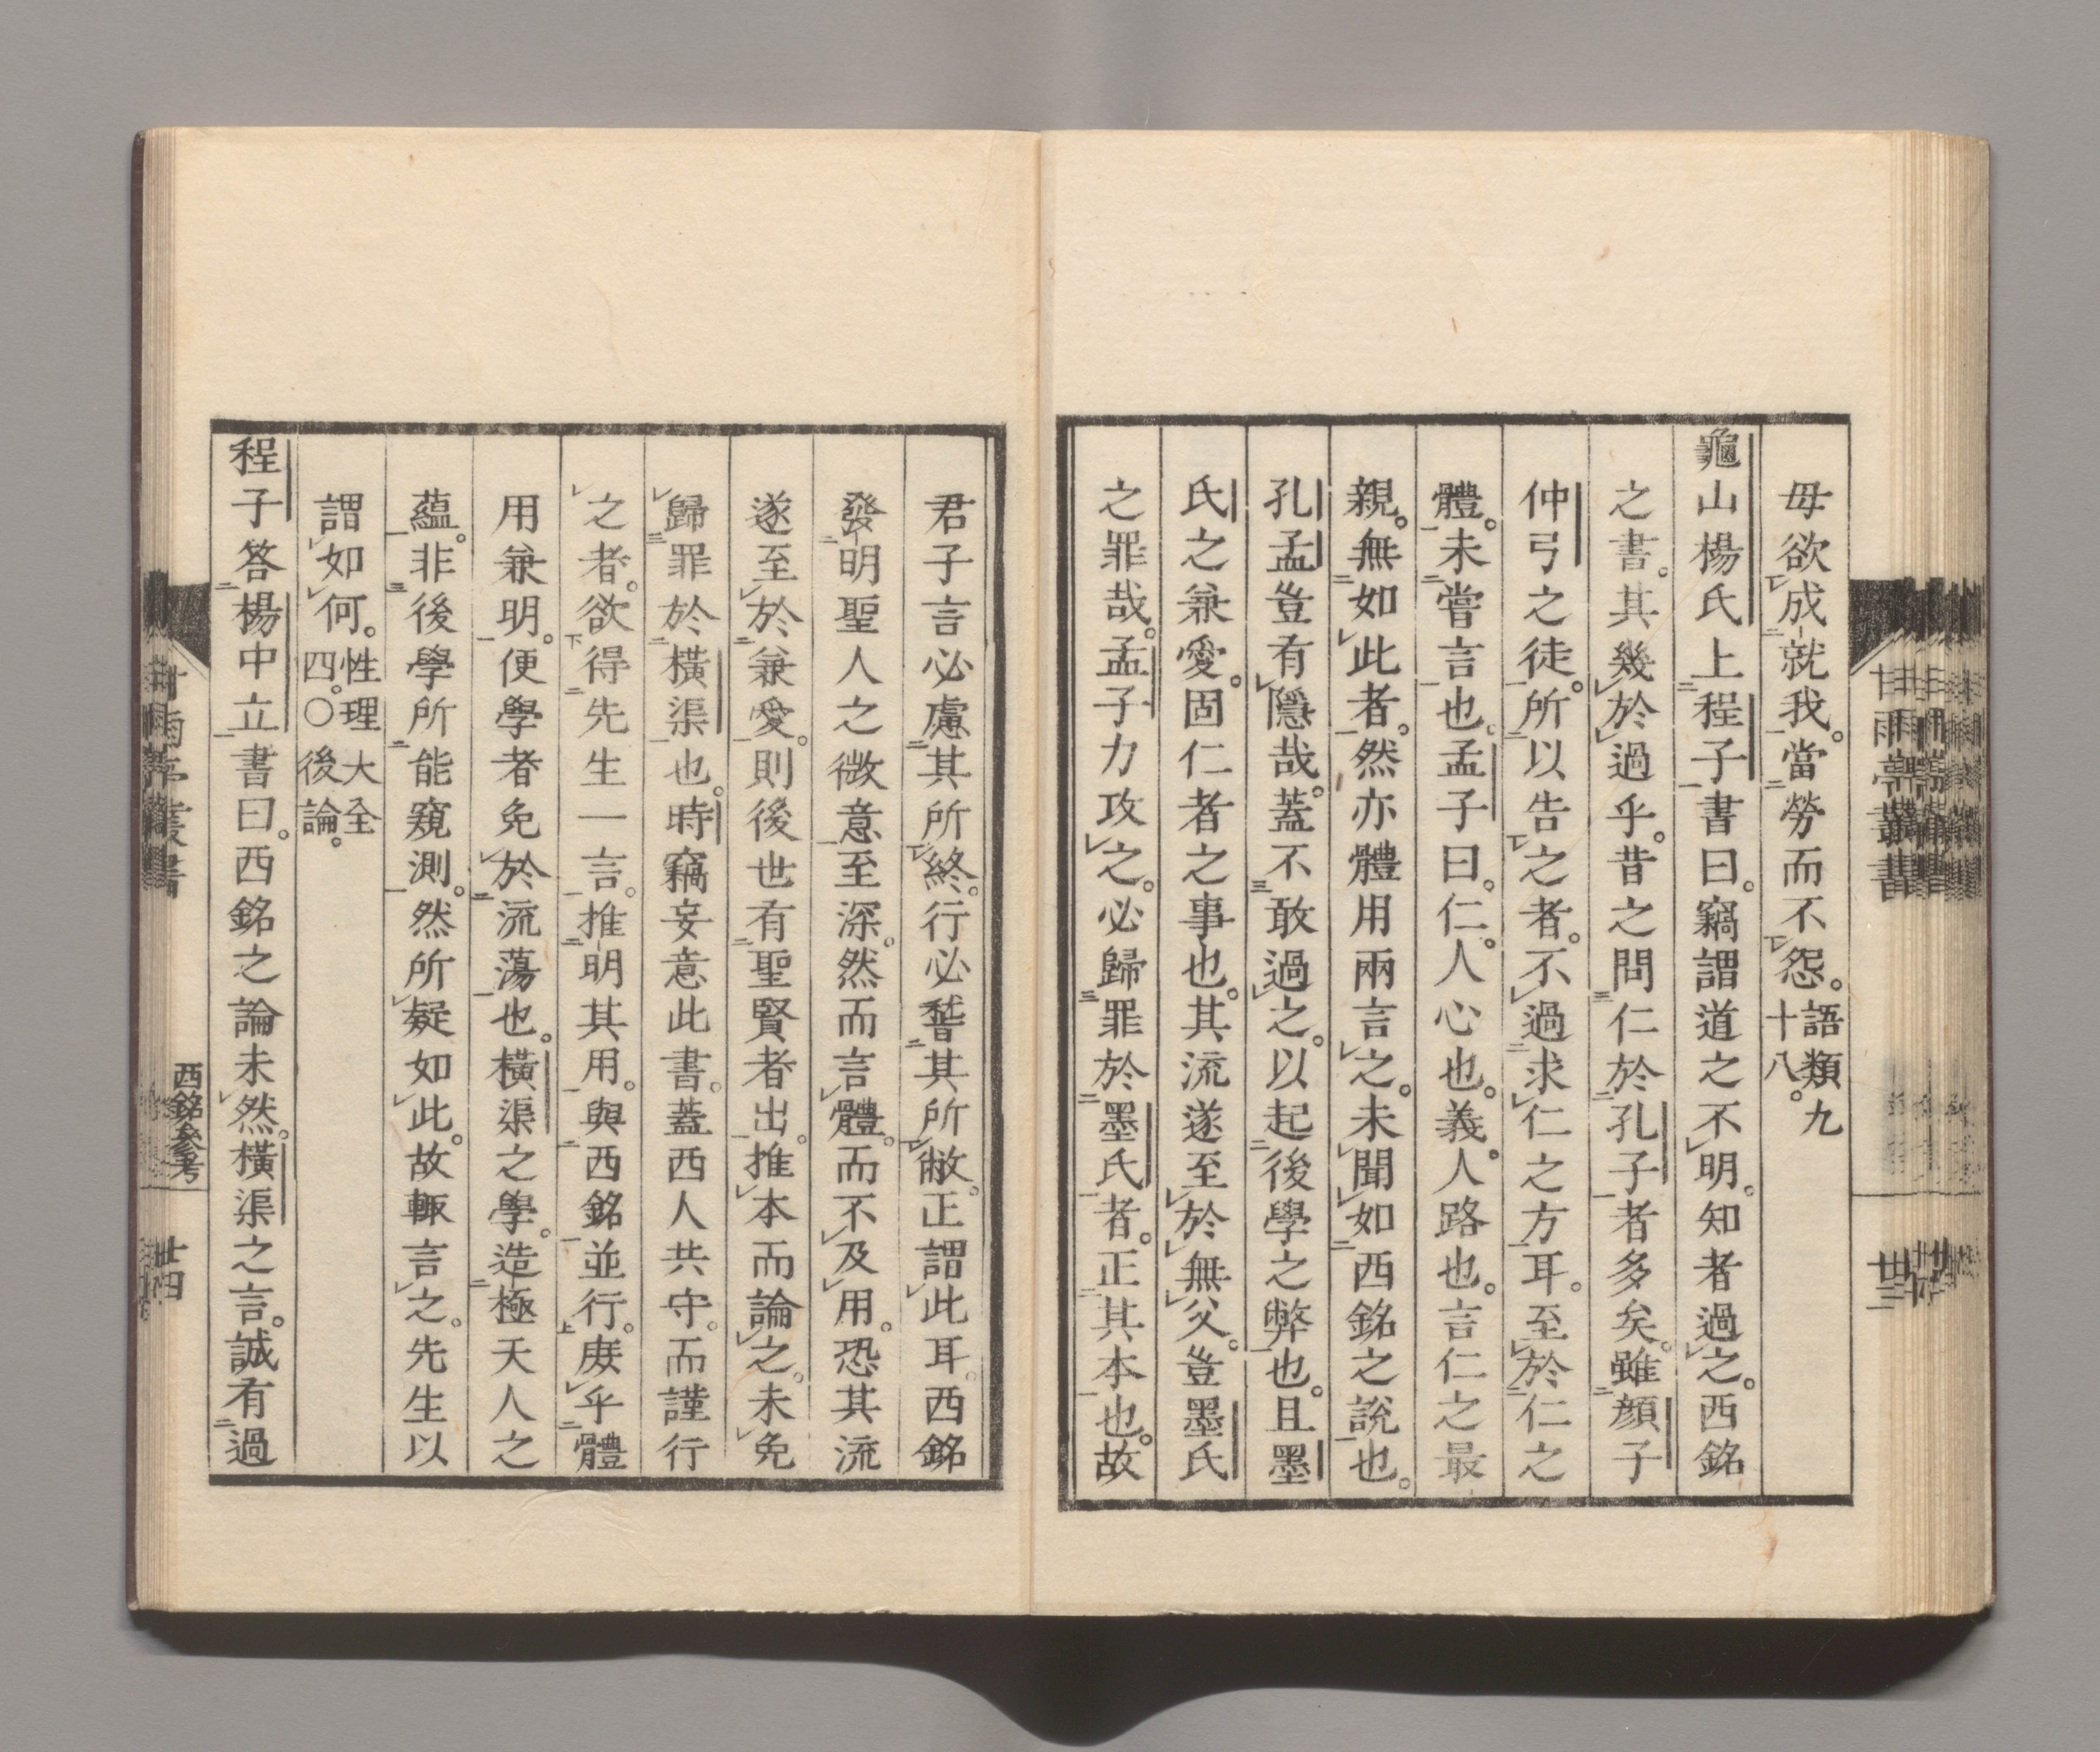 毋欲成就我。當勞而不怨。語類九十八。
龜山楊氏上程子書曰。竊謂道之不明。知者過之。西銘
之書。其幾於過乎。昔之問仁於孔子者多矣。雖顏子
仲弓之徒。所以告之者。不過求仁之方耳。至於仁之
體。未嘗言也。孟子曰。仁。人心也。義。人路也。言仁之最
親。無如此者。然亦體用兩言之。未聞如西銘之說也。
孔孟豈有隱哉。蓋不敢過之。以起後學之弊也。且墨
氏之兼愛。固仁者之事也。其流遂至於無父。豈墨氏
之罪哉。孟子力攻之。必歸罪於墨氏者。正其本也。故
君子言必慮其所終。行必稽其所敝。正謂此耳。西銘
發明聖人之微意至深。然而言體。而不及用。恐其流
遂至於兼愛。則後世有聖賢者出。推本而論之。未免
歸罪於橫渠也。時竊妄意此書。蓋西人共守。而謹行
之者。欲得先生一言。推明其用。與西銘並行。庶乎體
用兼明。便學者免於流蕩也。橫渠之學。造極天人之
蘊。非後學所能窺測。然所疑如此。故輙言之。先生以
謂如何。性理大全四。〇後論。
程子答楊中立書曰。西銘之論未然。橫渠之言。誠有過
甘雨亭叢書
西銘參考
廿四
甘雨亭叢書